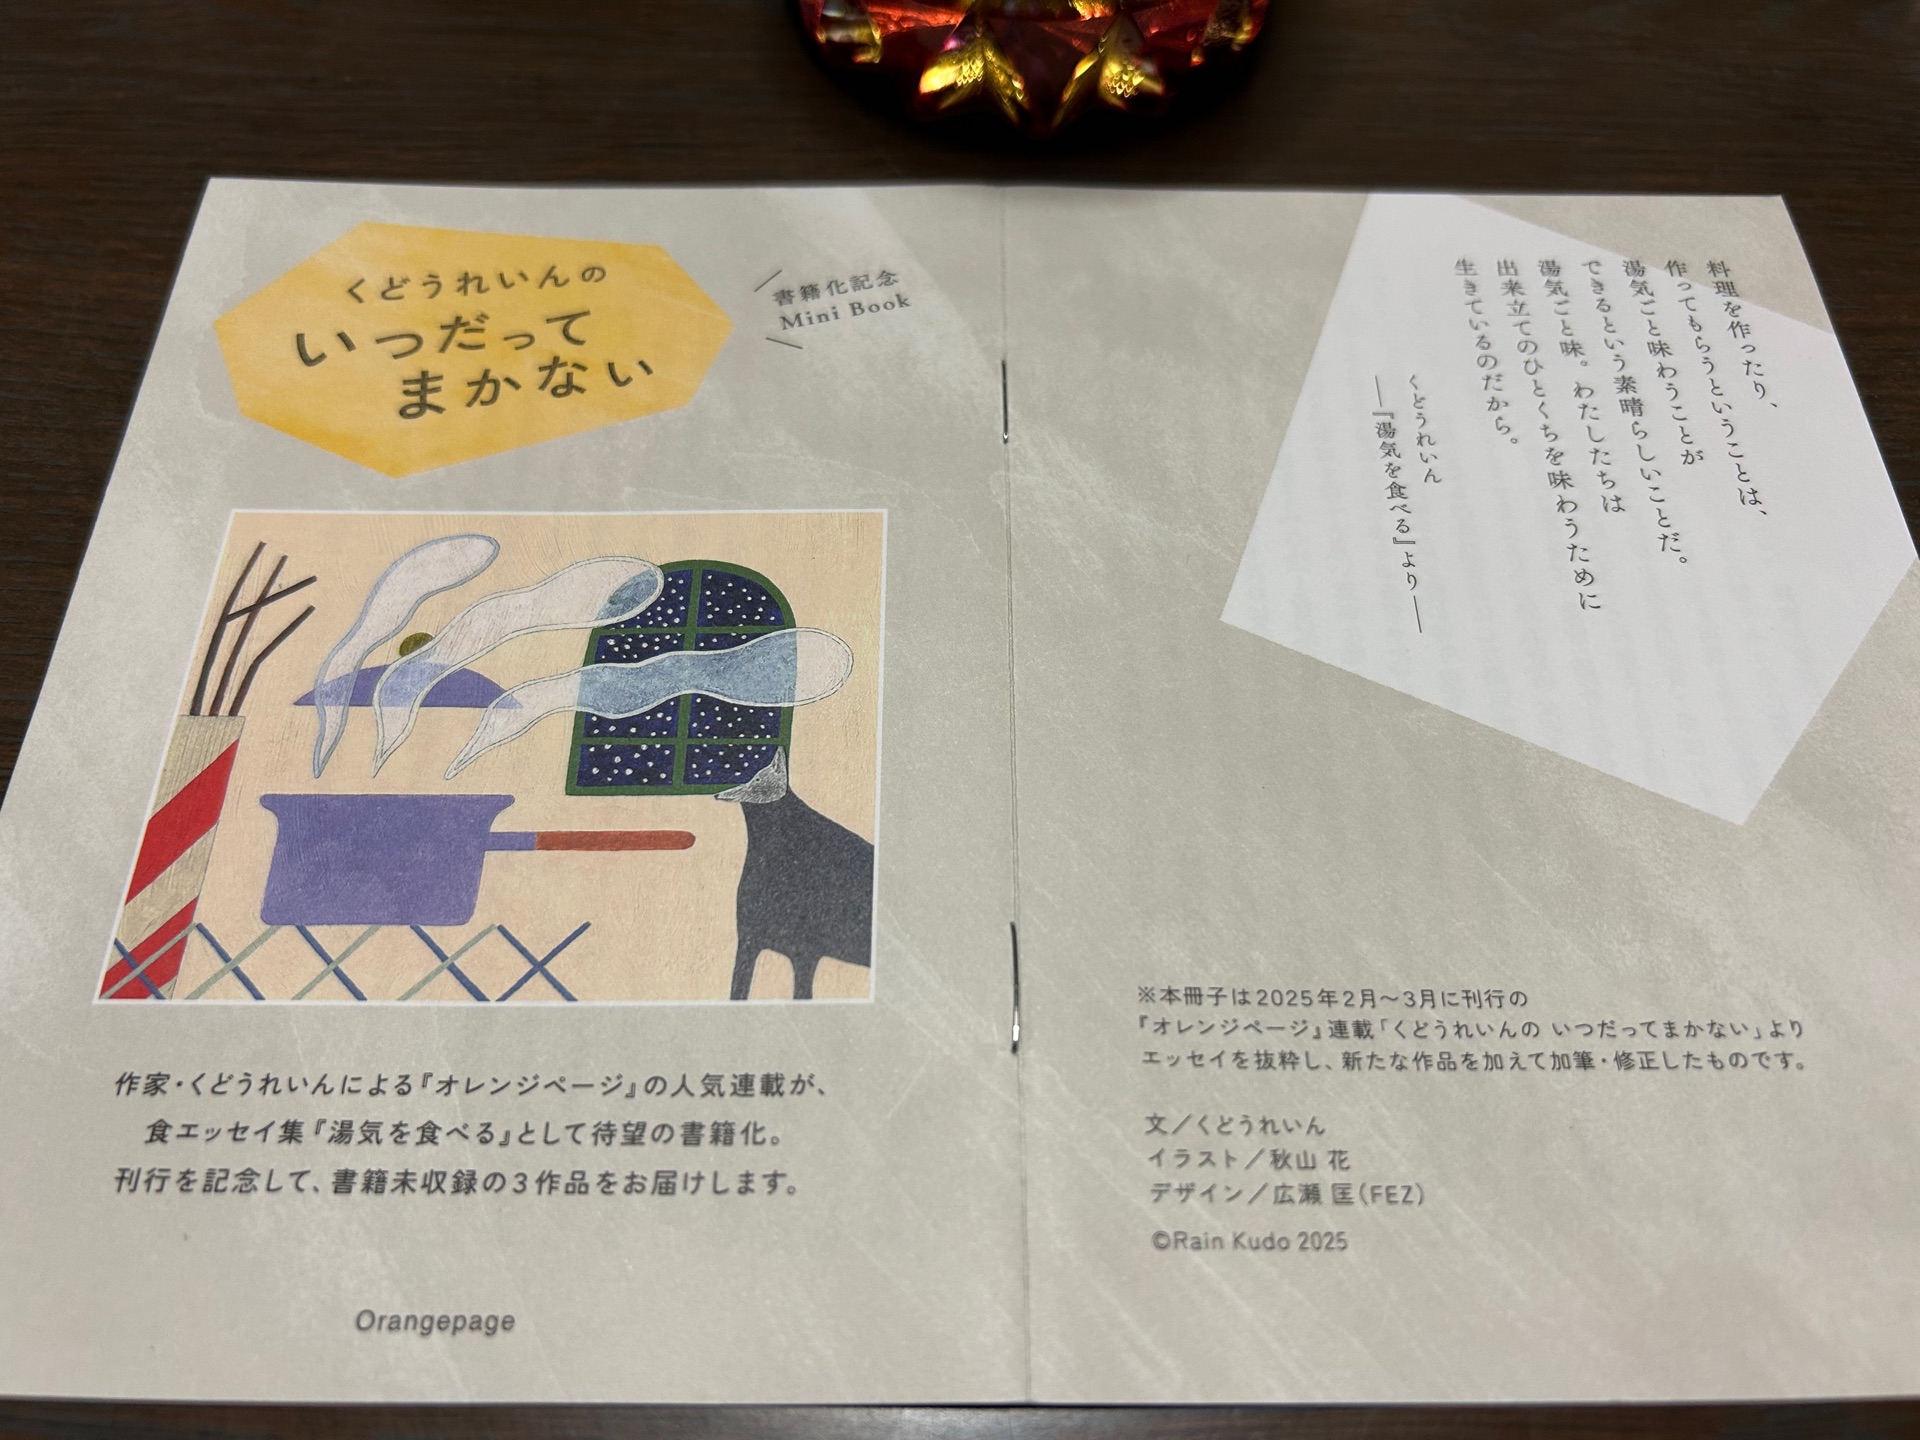 くどうれいんの
いつだって
まかない
書籍化記念
Mini Book
作家・くどうれいんによる『オレンジページ』の人気連載が、
食エッセイ集『湯気を食べる』として待望の書籍化。
刊行を記念して、書籍未収録の3作品をお届けします。
Orangepage
料理を作ったり、
作ってもらうということは、
湯気ごと味わうことが
できるという素晴らしいことだ。
湯気ごと味。わたしたちは
出来立てのひとくちを味わうために
生きているのだから。
くどうれいん
―『湯気を食べる』より―
※本冊子は2025年2月～3月に刊行の
『オレンジページ』連載「くどうれいんの いつだってまかない」より
エッセイを抜粋し、新たな作品を加えて加筆・修正したものです。
文／くどうれいん
イラスト／秋山 花
デザイン／広瀬 匡(FEZ)
©Rain Kudo 2025